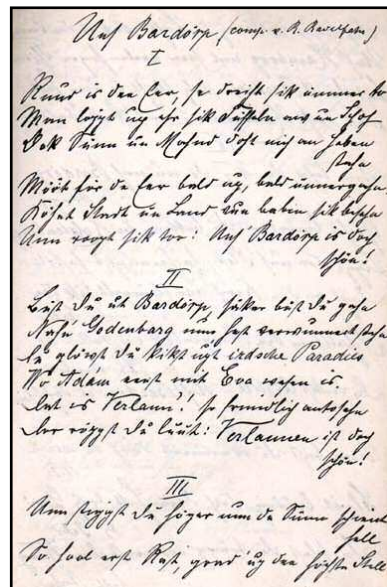 Uns Bardörp (comp. v. R.
I
Rund is den Eer, se dreiht sik ümmer to
Man loppt up ehr sik Tüffeln aw un Schoh
Ook Sünn un Mahnd doht nich an Häben
stahn
Mööt för de Eer bald up, bald unnergahn
Köhnt Stadt un Land vun baben sik besehn
Unn roopt sik tor: Uns Bardörp is doch
schön!
II
Büst Du ut Bardörp, säker büst Du gahn
Nahn Godenbarg unn hest verwunnert stahn
Du glöwst Du kikst upt irdsche Paradies
Wo Adam eenst mit Eva wesen is.
Dat is so freundlich antosehn
Der röppst du luut: is doch
schön!
III
Unn stiggst Du höger unn de Sünn schient
hell
So haal erst Rast, grad up den höchsten Stell